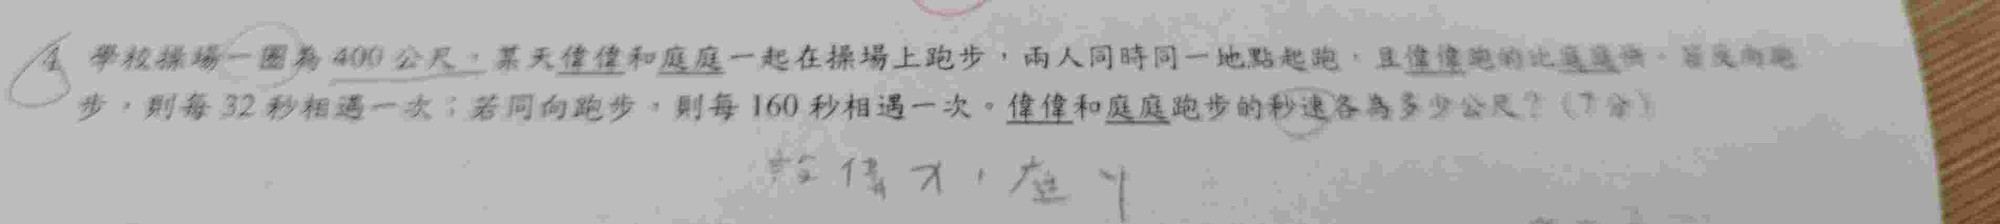 4 學校操場一圈為 400 公尺，某天偉偉和庭庭一起在操場上跑步，兩人同時同一地點起跑，且偉偉跑的比庭庭快。若反向跑
步，則每 32 秒相遇一次；若同向跑步，則每 160 秒相遇一次。偉偉和庭庭跑步的秒速各為多少公尺？（7 分）
設偉 x，庭 y